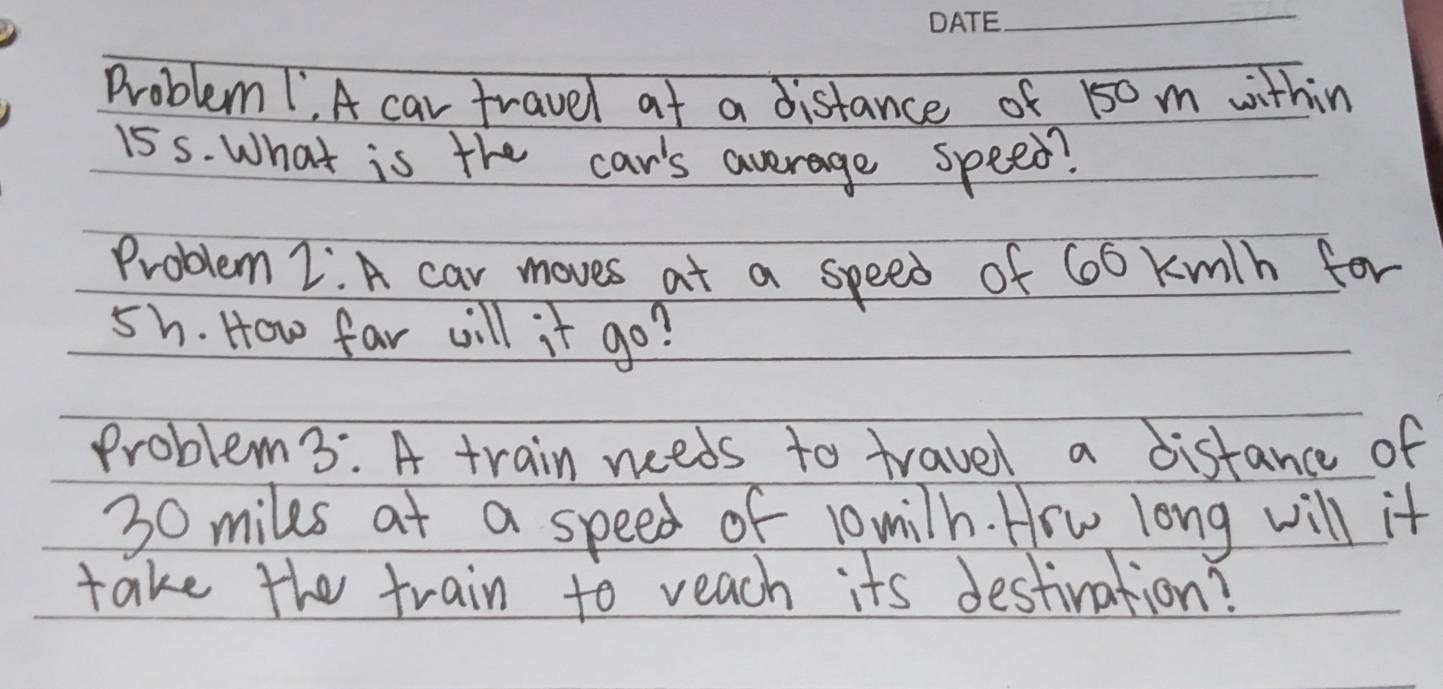 DATE
Problem 1: A car travel at a distance of 150 m within
15 s. What is the car's average speed?
Problem 2: A car moves at a speed of 60 km/h for
5h. How far will it go?
Problem 3: A train needs to travel a distance of
30 miles at a speed of 10 mi/h. How long will it
take the train to reach its destination?